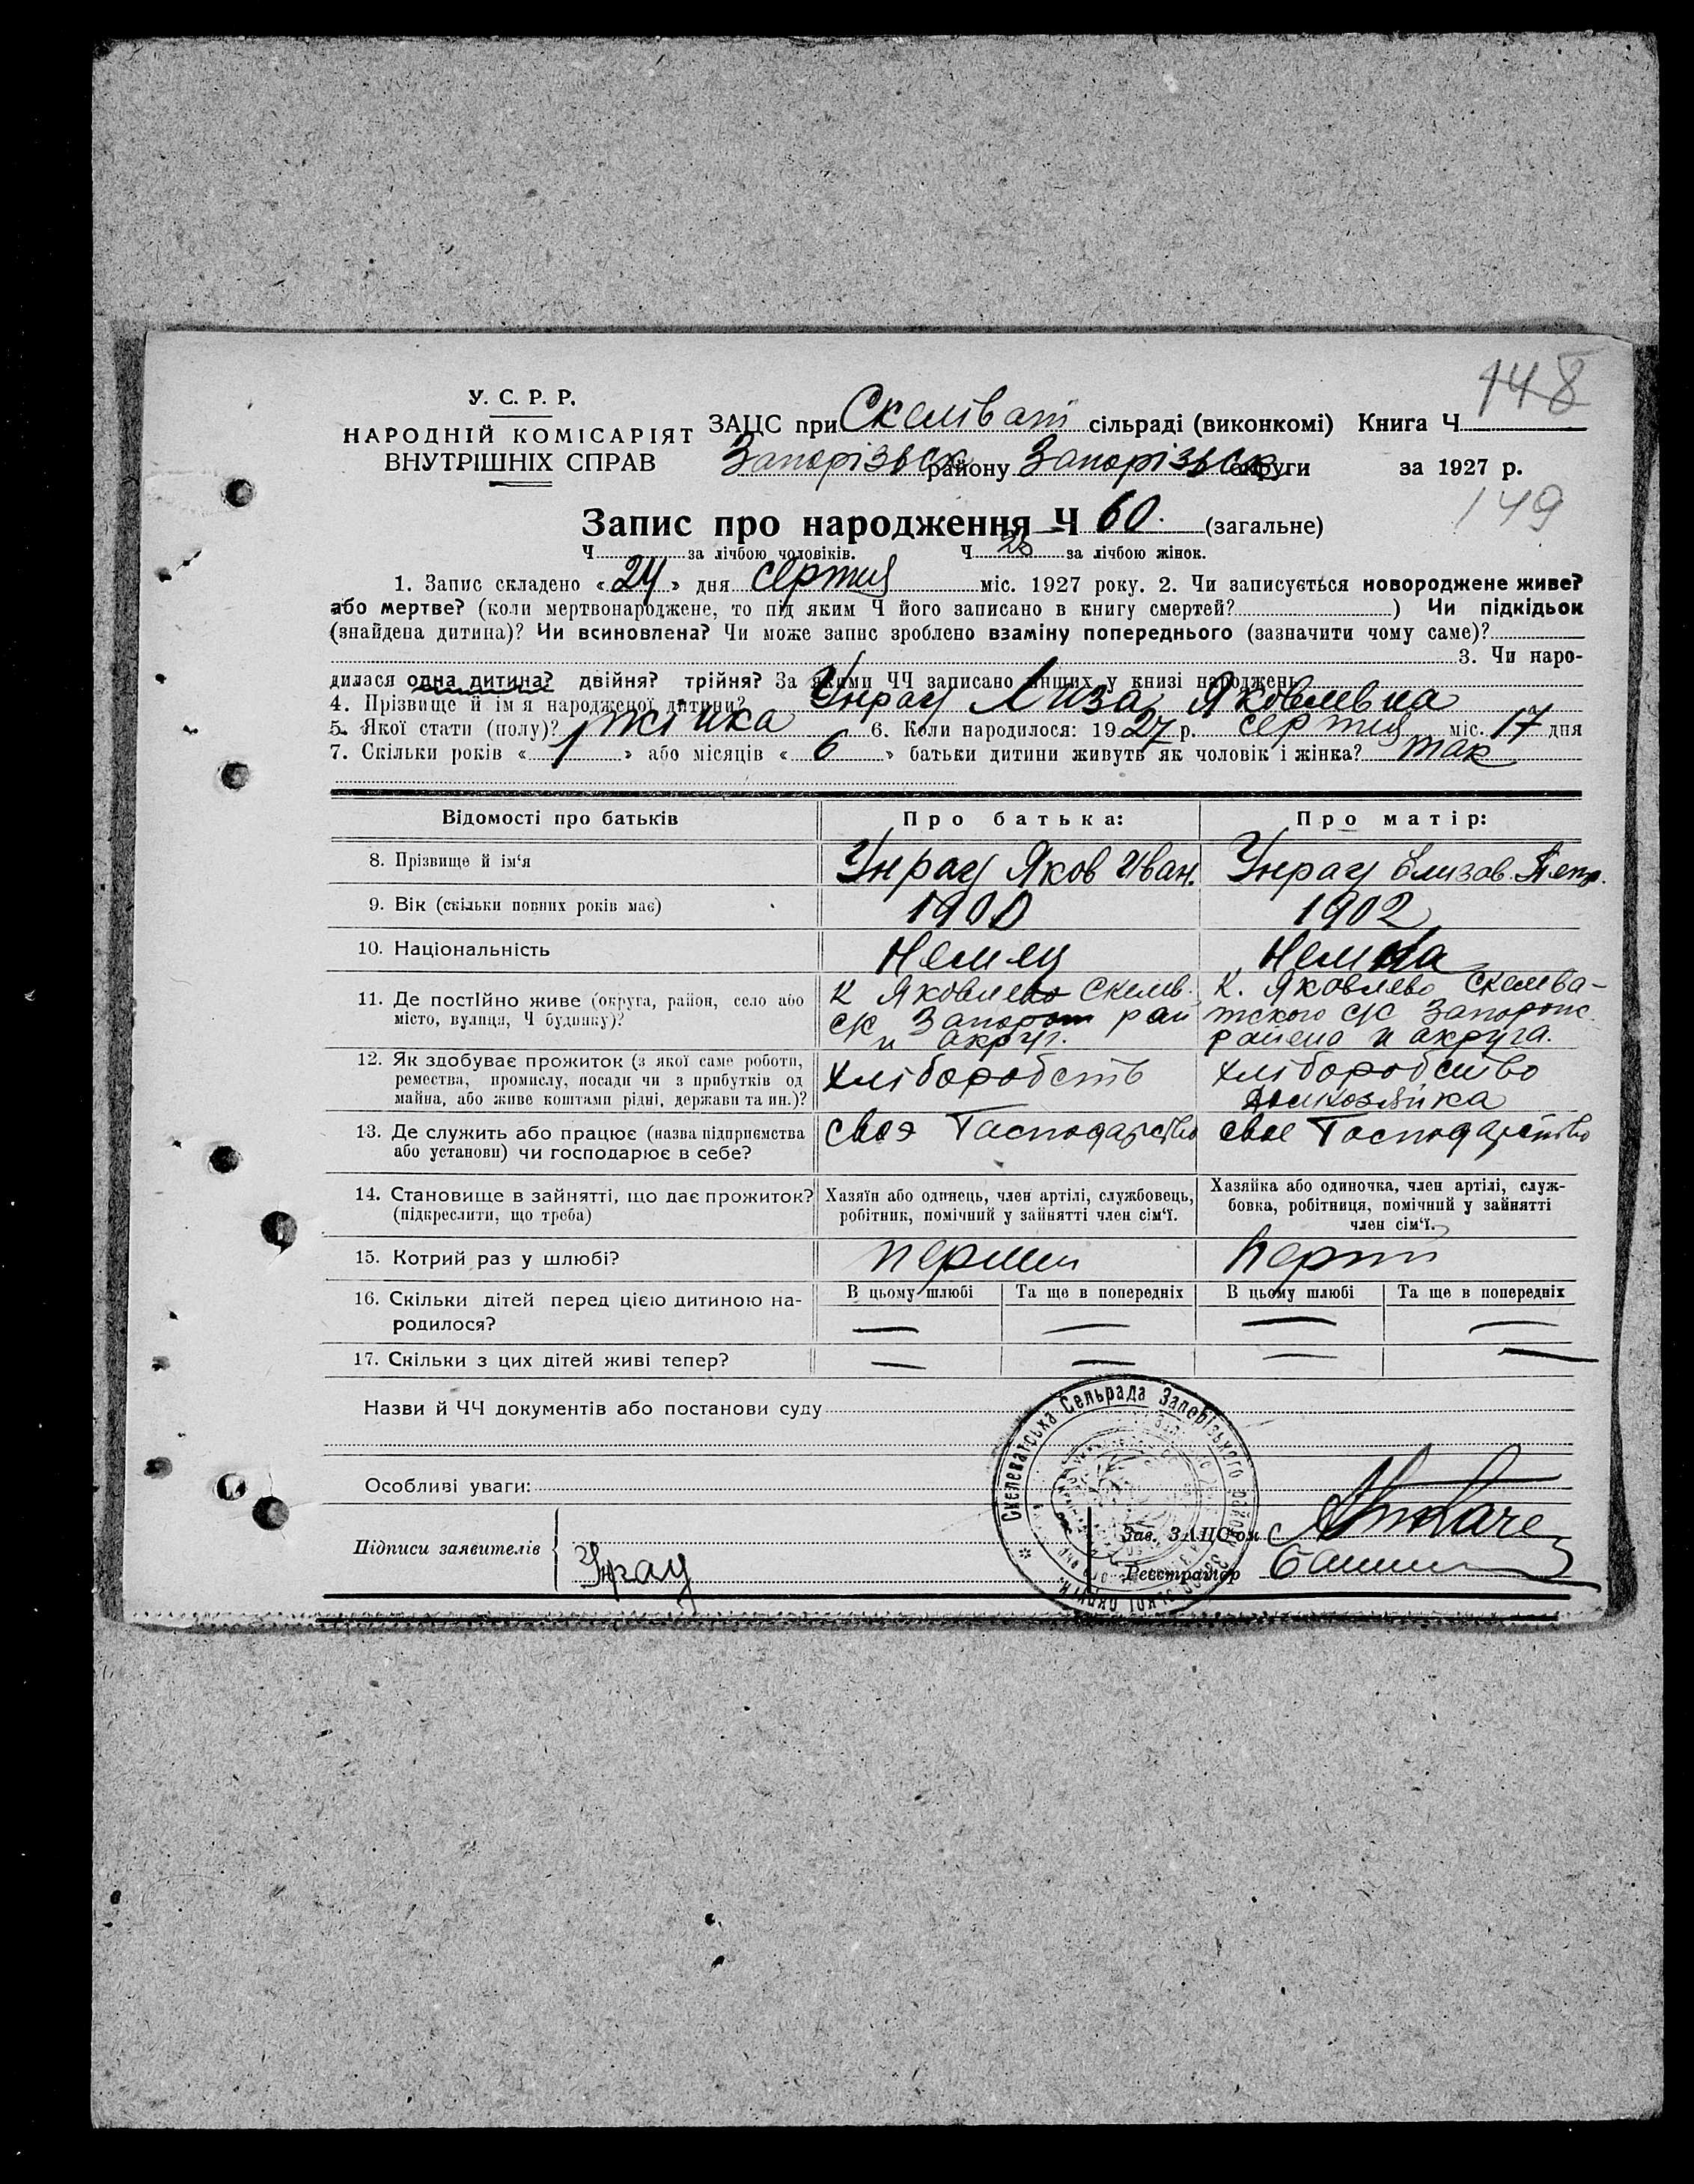 148
У. С. Р. Р.
НАРОДНІЙ КОМІСАРІЯТ
ВНУТРІШНІХ СПРАВ
ЗАЦС при Скеліват сільраді (виконкомі) Книга Ч
Запорізьск району Запорізьск округи за 1927 р.
149
Запис про народження Ч 60. (загальне)
Ч за лічбою чоловіків. Ч 26 за лічбою жінок.
1. Запис складено « 24 » дня серпня міс. 1927 року. 2. Чи записується новороджене живе?
або мертве? (коли мертвонароджене, то під яким Ч його записано в книгу смертей? ) Чи підкідьок
(знайдена дитина)? Чи всиновлена? Чи може запис зроблено взаміну попереднього (зазначити чому саме)?
3. Чи наро-
дилася одна дитина? двійня? трійня? За якими ЧЧ записано инших у книзі народжень
4. Прізвище й ім'я народженої дитини? Унрау Лиза Яковлевна
5. Якої стати (полу)? жінка 6. Коли народилося: 1927 р. серпня міс. 17 дня
7. Скільки років « 1 » або місяців « 6 » батьки дитини живуть як чоловік і жінка? так
Відомості про батьків Про батька: Про матір:
8. Прізвище й ім'я Унрау Яков Иван. Унрау Елизав. Петр.
9. Вік (скільки повних років має) 1900 1902
10. Національність Немец Немка
11. Де постійно живе (округа, район, село або місто, вулиця, Ч будинку)?
к Яковлево Скелев.
с/с Запорож рай
и округ.
к. Яковлево Скелева-
тского с/с Запорожс.
района и округа.
12. Як здобуває прожиток (з якої саме роботи,
ремества, промислу, посади чи з прибутків од
майна, або живе коштами рідні, держави та ин.)?
хліборобств
хліборобство
домхозяйка
13. Де служить або працює (назва підприємства
або установи) чи господарює в себе?
своэ Господарство
свое Господарство
14. Становище в зайнятті, що дає прожиток?
(підкреслити, що треба)
Хазяїн або одинець, член артілі, службовець,
робітник, помічний у зайнятті член сім'ї.
Хазяйка або одиночка, член артілі, служ-
бовка, робітниця, помічний у зайнятті
член сім'ї.
15. Котрий раз у шлюбі? перший перший
16. Скільки дітей перед цією дитиною на-
родилося?
В цьому шлюбі Та ще в попередніх В цьому шлюбі Та ще в попередніх
— — — —
17. Скільки з цих дітей живі тепер? — — — —
Назви й ЧЧ документів або постанови суду
Особливі уваги:
Скелеватська Сельрада Запорізького району
Підписи заявителів Унрау
Зав. ЗАЦС'ом
Реєстратор